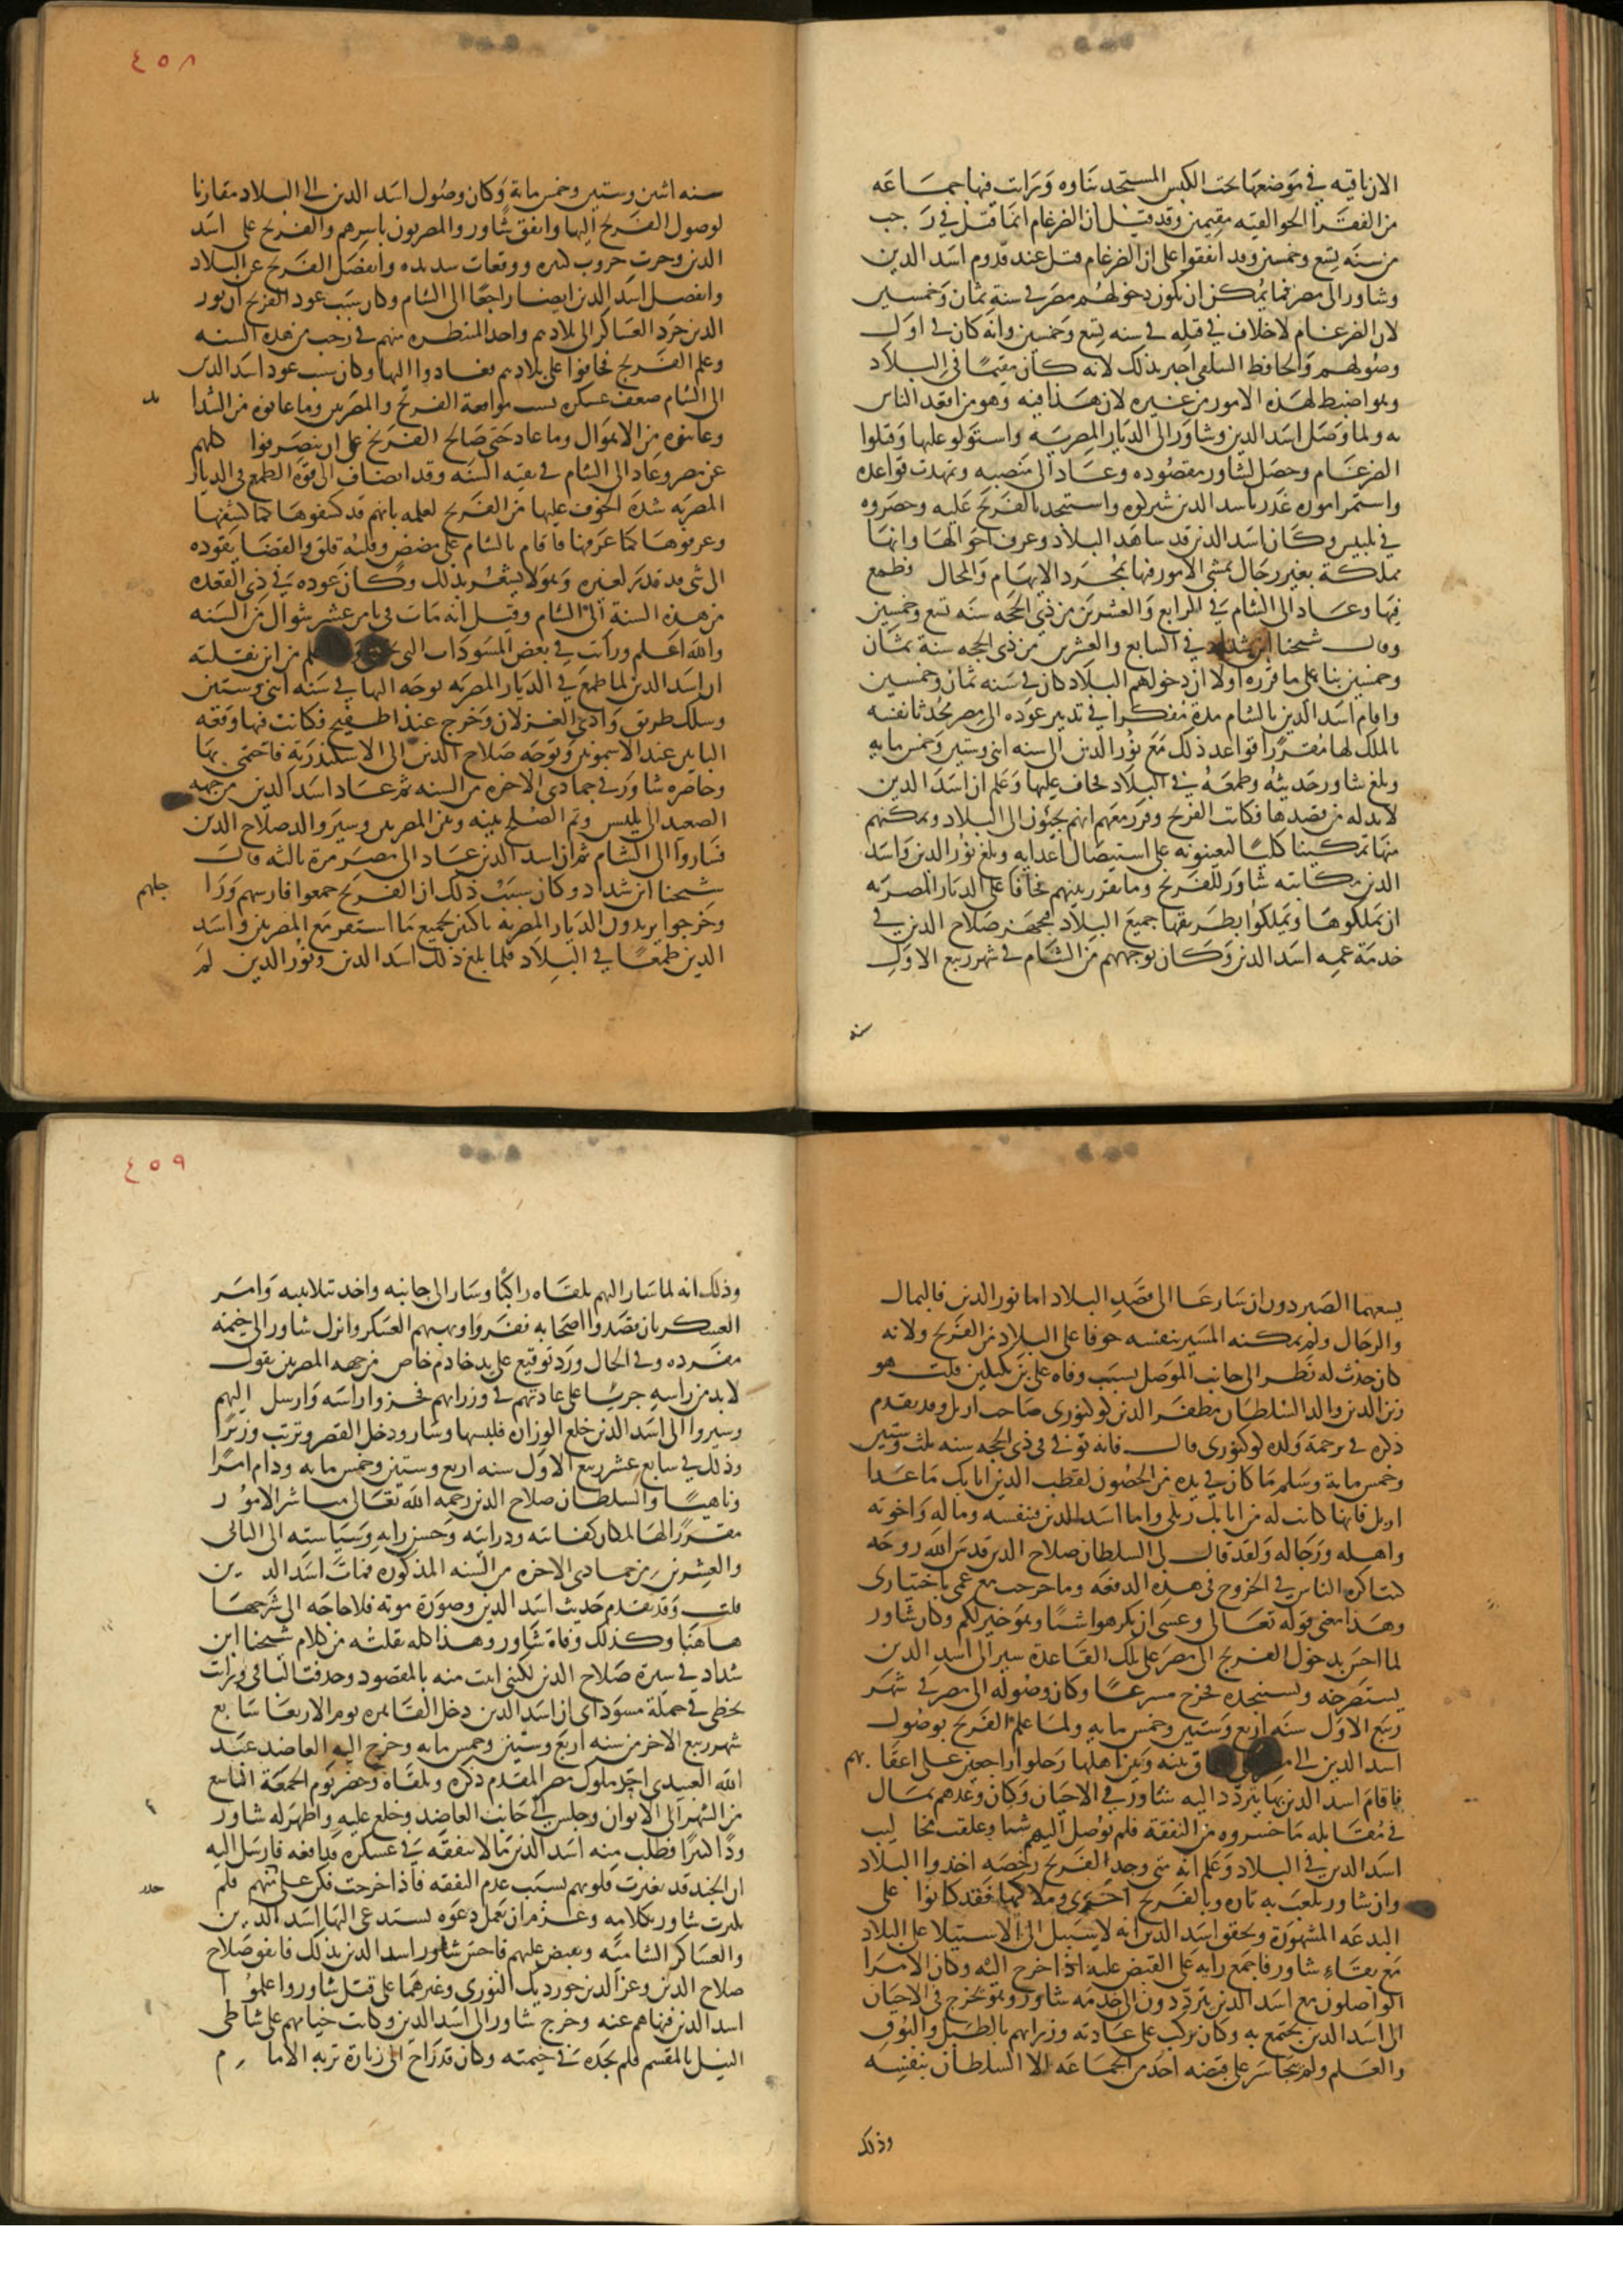 الان باقيه في موضعها تحت الكبش المستجد بناوه ورايت فيها جماعه
من الفقرا الجوالقيه مقيمين وقد قيل ان الضرغام انما قتل في رجب
من سنه تسع وخمسين وقد اتفقوا على ان الضرغام قتل عند قدوم اسد الدين
وشاور الى مصر فما يمكن ان تكون دخولهم مصر في سنة ثمان وخمسين
لان الضرغام لا خلاف في قتله في سنه تسع وخمسين وانه كان في اول
وصولهم والحافظ السلفي اخبر بذلك لانه كان مقيما في البلاد
وهو اضبط لهذه الامور من غيره لان هذا فنه وهو من اقعد الناس
به ولما وصل اسد الدين وشاور الى الديار المصريه واستولو عليها وقتلوا
الضرغام وحصل لشاور مقصوده وعاد الى منصبه وتمهدت قواعده
واستمر اموره غدر باسد الدين شيركوه واستنجد بالفرنج عليه وحصروه
في بلبيس وكان اسد الدين قد شاهد البلاد وعرف احوالها وانها
مملكة بغير رجال تمشي الامور فيها بمجرد الايهام والمحال فطمع
فيها وعاد الى الشام في الرابع والعشرين من ذي الحجه سنه تسع وخمسين
وقال شيخنا ابن شداد في السابع والعشرين من ذي الحجه سنة ثمان
وخمسين بنا على ما قرره اولا ان دخولهم البلاد كان في سنه ثمان وخمسين
واقام اسد الدين بالشام مدة مفكرا في تدبير عوده الى مصر محدثا نفسه
بالملك لها مقررا قواعد ذلك مع نور الدين الى سنه اثنى وستين وخمس مايه
وبلغ شاور حديثه وطمعه في البلاد فخاف عليها وعلم ان اسد الدين
لابد له من قصدها فكاتب الفرنج وقرر معهم انهم يجيئون الى البلاد ويمكنهم
منها تمكينا كليا ليعينوه على استيصال اعدايه وبلغ نور الدين واسد
الدين مكاتبه شاور للفرنج وما تقرر بينهم فخافا على الديار المصريه
ان يملكوها ويملكوا بطريقها جميع البلاد فتجهز صلاح الدين في
خدمة عمه اسد الدين وكان توجههم من الشام في شهر ربيع الاول
سنه
٤٥٨
سنه اثنين وستين وخمس ماية وكان وصول اسد الدين الى البلاد مقارنا
لوصول الفرنج اليها واتفق شاور والمصريون باسرهم والفرنج على اسد
الدين وجرت حروب كثيره ووقعات شديده وانفصل الفرنج عن البلاد
وانفصل اسد الدين ايضا راجعا الى الشام وكان سبب عود الفرنج ان نور
الدين جرد العساكر الى بلادهم واخذ المنيطره منهم في رجب من هذه السنه
وعلم الفرنج فخافوا على بلادهم فعادوا اليها وكان سبب عود اسد الدين
الى الشام ضعف عسكره بسبب مواقعة الفرنج والمصريين وما عانوه من الشدايد
وعاينوه من الاهوال وما عاد حتى صالح الفرنج على ان ينصرفوا كلهم
عن مصر وعاد الى الشام في بقيه السنه وقد انضاف الى قوة الطمع في الديار
المصريه شدة الخوف عليها من الفرنج لعلمه بانهم قد كشفوها كما كشفها
وعرفوها كما عرفها فاقام بالشام على مضض وقلبه قلق والقضا يقوده
الى شي قد قدر لغيره وهو لا يشعر بذلك وكان عوده في ذي القعده
من هذه السنة الى الشام وقيل انه مات في ثامن عشر شوال من السنه
والله اعلم ورايت في بعض المسودات التي من اين نقلته
ان اسد الدين لما طمع في الديار المصريه توجه اليها في سنه اثنى وستين
وسلك طريق وادي الغزلان وخرج عند اطفيح فكانت فيها وقعه
البابين عند الاشمونين وتوجه صلاح الدين الى الاسكندرية فاحتمى بها
وحاصره شاور في جمادى الاخره من السنه ثم عاد اسد الدين من جهه
الصعيد الى بلبيس وتم الصلح بينه وبين المصريين وسيروا له صلاح الدين
فساروا الى الشام ثم ان اسد الدين عاد الى مصر مرة ثالثه قال
شيخنا ابن شداد وكان سبب ذلك ان الفرنج جمعوا فارسهم وراجلهم
وخرجوا يريدون الديار المصريه ناكثين لجميع ما استقر مع المصريين واسد
الدين طمعا في البلاد فلما بلغ ذلك اسد الدين ونور الدين لم
يسعهما الصبر دون ان سارعا الى قصد البلاد اما نور الدين فبالمال
والرجال ولم يمكنه المسير بنفسه خوفا على البلاد من الفرنج ولانه
كان حدث له نظر الى جانب الموصل بسبب وفاه علي بن بكتكين قلت هو
زين الدين والد السلطان مظفر الدين كوكبورى صاحب اربل وقد تقدم
ذكره في ترجمة ولده كوكبورى قال فانه توفي في ذي الحجه سنه ثلث وستين
وخمس ماية وسلم ما كان في يده من الحصون لقطب الدين اتابك ما عدا
اربل فانها كانت له من اتابك زنكي واما اسد الدين فبنفسه وماله واخوته
واهله ورجاله ولقد قال لي السلطان صلاح الدين قدس الله روحه
كنت اكره الناس في الخروج في هذه الدفعه وما خرجت مع عمي باختيارى
وهذا معنى قوله تعالى وعسى ان تكرهوا شيا وهو خير لكم وكان شاور
لما احس بدخول الفرنج الى مصر على تلك القاعدة سير الى اسد الدين
يستصرخه ويستنجده فخرج مسرعا وكان وصوله الى مصر في شهر
ربيع الاول سنه اربع وستين وخمس مايه ولما علم الفرنج بوصول
اسد الدين الى بينه وبين اهلها رحلوا راجعين على اعقابهم
فاقام اسد الدين بها يتردد اليه شاور في الاحيان وكان وعدهم بمال
في مقابله ما خسروه من النفقه فلم يوصل اليهم شيا وعلقت مخاليب
اسد الدين في البلاد وعلم انه متى وجد الفرنج رخصه اخذوا البلاد
وان شاور يلعب به تاره وبالفرنج اخرى وملاكها فقد كانوا على
البدعه المشهورة وتحقق اسد الدين انه لا سبيل الى الاستيلا على البلاد
مع بقاء شاور فاجمع رايه على القبض عليه اذا خرج اليه وكان الامرا
الواصلون مع اسد الدين يترددون الى خدمه شاور وهو يخرج في الاحيان
الى اسد الدين يجتمع به وكان يركب على عادته وزرايهم بالطبل والبوق
والعلم ولم يتجاسر على قبضه احد من الجماعه الا السلطان بنفسه
وذلك
٤٥٩
وذلك انه لما سار اليهم تلقاه راكبا وسار الى جانبه واخذ بتلابيبه وامر
العسكر بان قصدوا اصحابه ففروا ونهبهم العسكر وانزل شاور الى خيمة
مفرده وفي الحال ورد توقيع على يد خادم خاص من جهه المصريين يقول
لابد من راسه جريا على عادتهم في وزرايهم فحزوا راسه وارسل اليهم
وسيروا الى اسد الدين خلع الوزارة فلبسها وسار ودخل القصر وترتب وزيرا
وذلك في سابع عشر ربيع الاول سنه اربع وستين وخمس مايه ودام امرا
وناهيا والسلطان صلاح الدين رحمه الله تعالى مباشر الامور
مقررا لها لمكان كفايته ودرايته وحسن رايه وسياسته الى الثاني
والعشرين من جمادى الاخره من السنه المذكوره فمات اسد الدين
قلت وقد تقدم حديث اسد الدين وصورة موته فلا حاجه الى شرحها
هاهنا وكذلك وفاة شاور وهذا كله نقلته من كلام شيخنا ابن
شداد في سيرة صلاح الدين لكني اتيت منه بالمقصود وحذفت الباقي ورايت
بخطي في جملة مسوداتي ان اسد الدين دخل القاهره يوم الاربعا سابع
شهر ربيع الاخر من سنه اربع وستين وخمس مايه وخرج اليه العاضد عبد
الله العبيدي اخر ملوك مصر المقدم ذكره وتلقاه وحضر يوم الجمعة التاسع
من الشهر الى الايوان وجلس الى جانب العاضد وخلع عليه واظهر له شاور
ودا كثيرا فطلب منه اسد الدين مالا ينفقه في عسكره فدافعه فارسل اليه
ان الجند قد تغيرت قلوبهم بسبب عدم النفقه فاذا خرجت فكن على حذر منهم فلم
يكترث شاور بكلامه وعزم ان يعمل دعوه يستدعي اليها اسد الدين
والعساكر الشاميه ويقبض عليهم فاحس شاور اسد الدين بذلك فاتفق صلاح
صلاح الدين وعز الدين جورديك النوري وغيرهما على قتل شاور واعلموا
اسد الدين فنهاهم عنه وخرج شاور الى اسد الدين وكانت خيامهم على شاطي
النيل بالمقسم فلم يجده في خيمته وكان قد راح الى زيارة تربه الامام